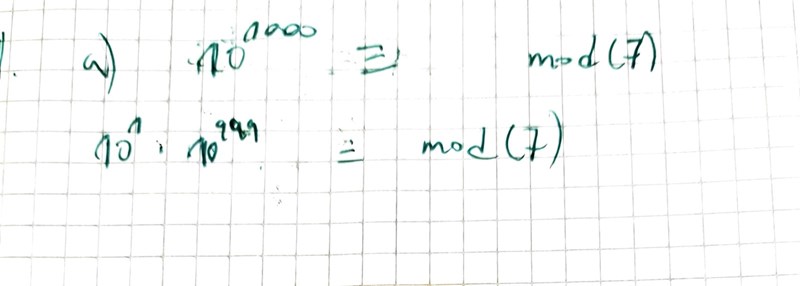 1. a) 10¹⁰⁰⁰ ≡ mod(7)
10¹ · 10⁹⁹⁹ ≡ mod(7)